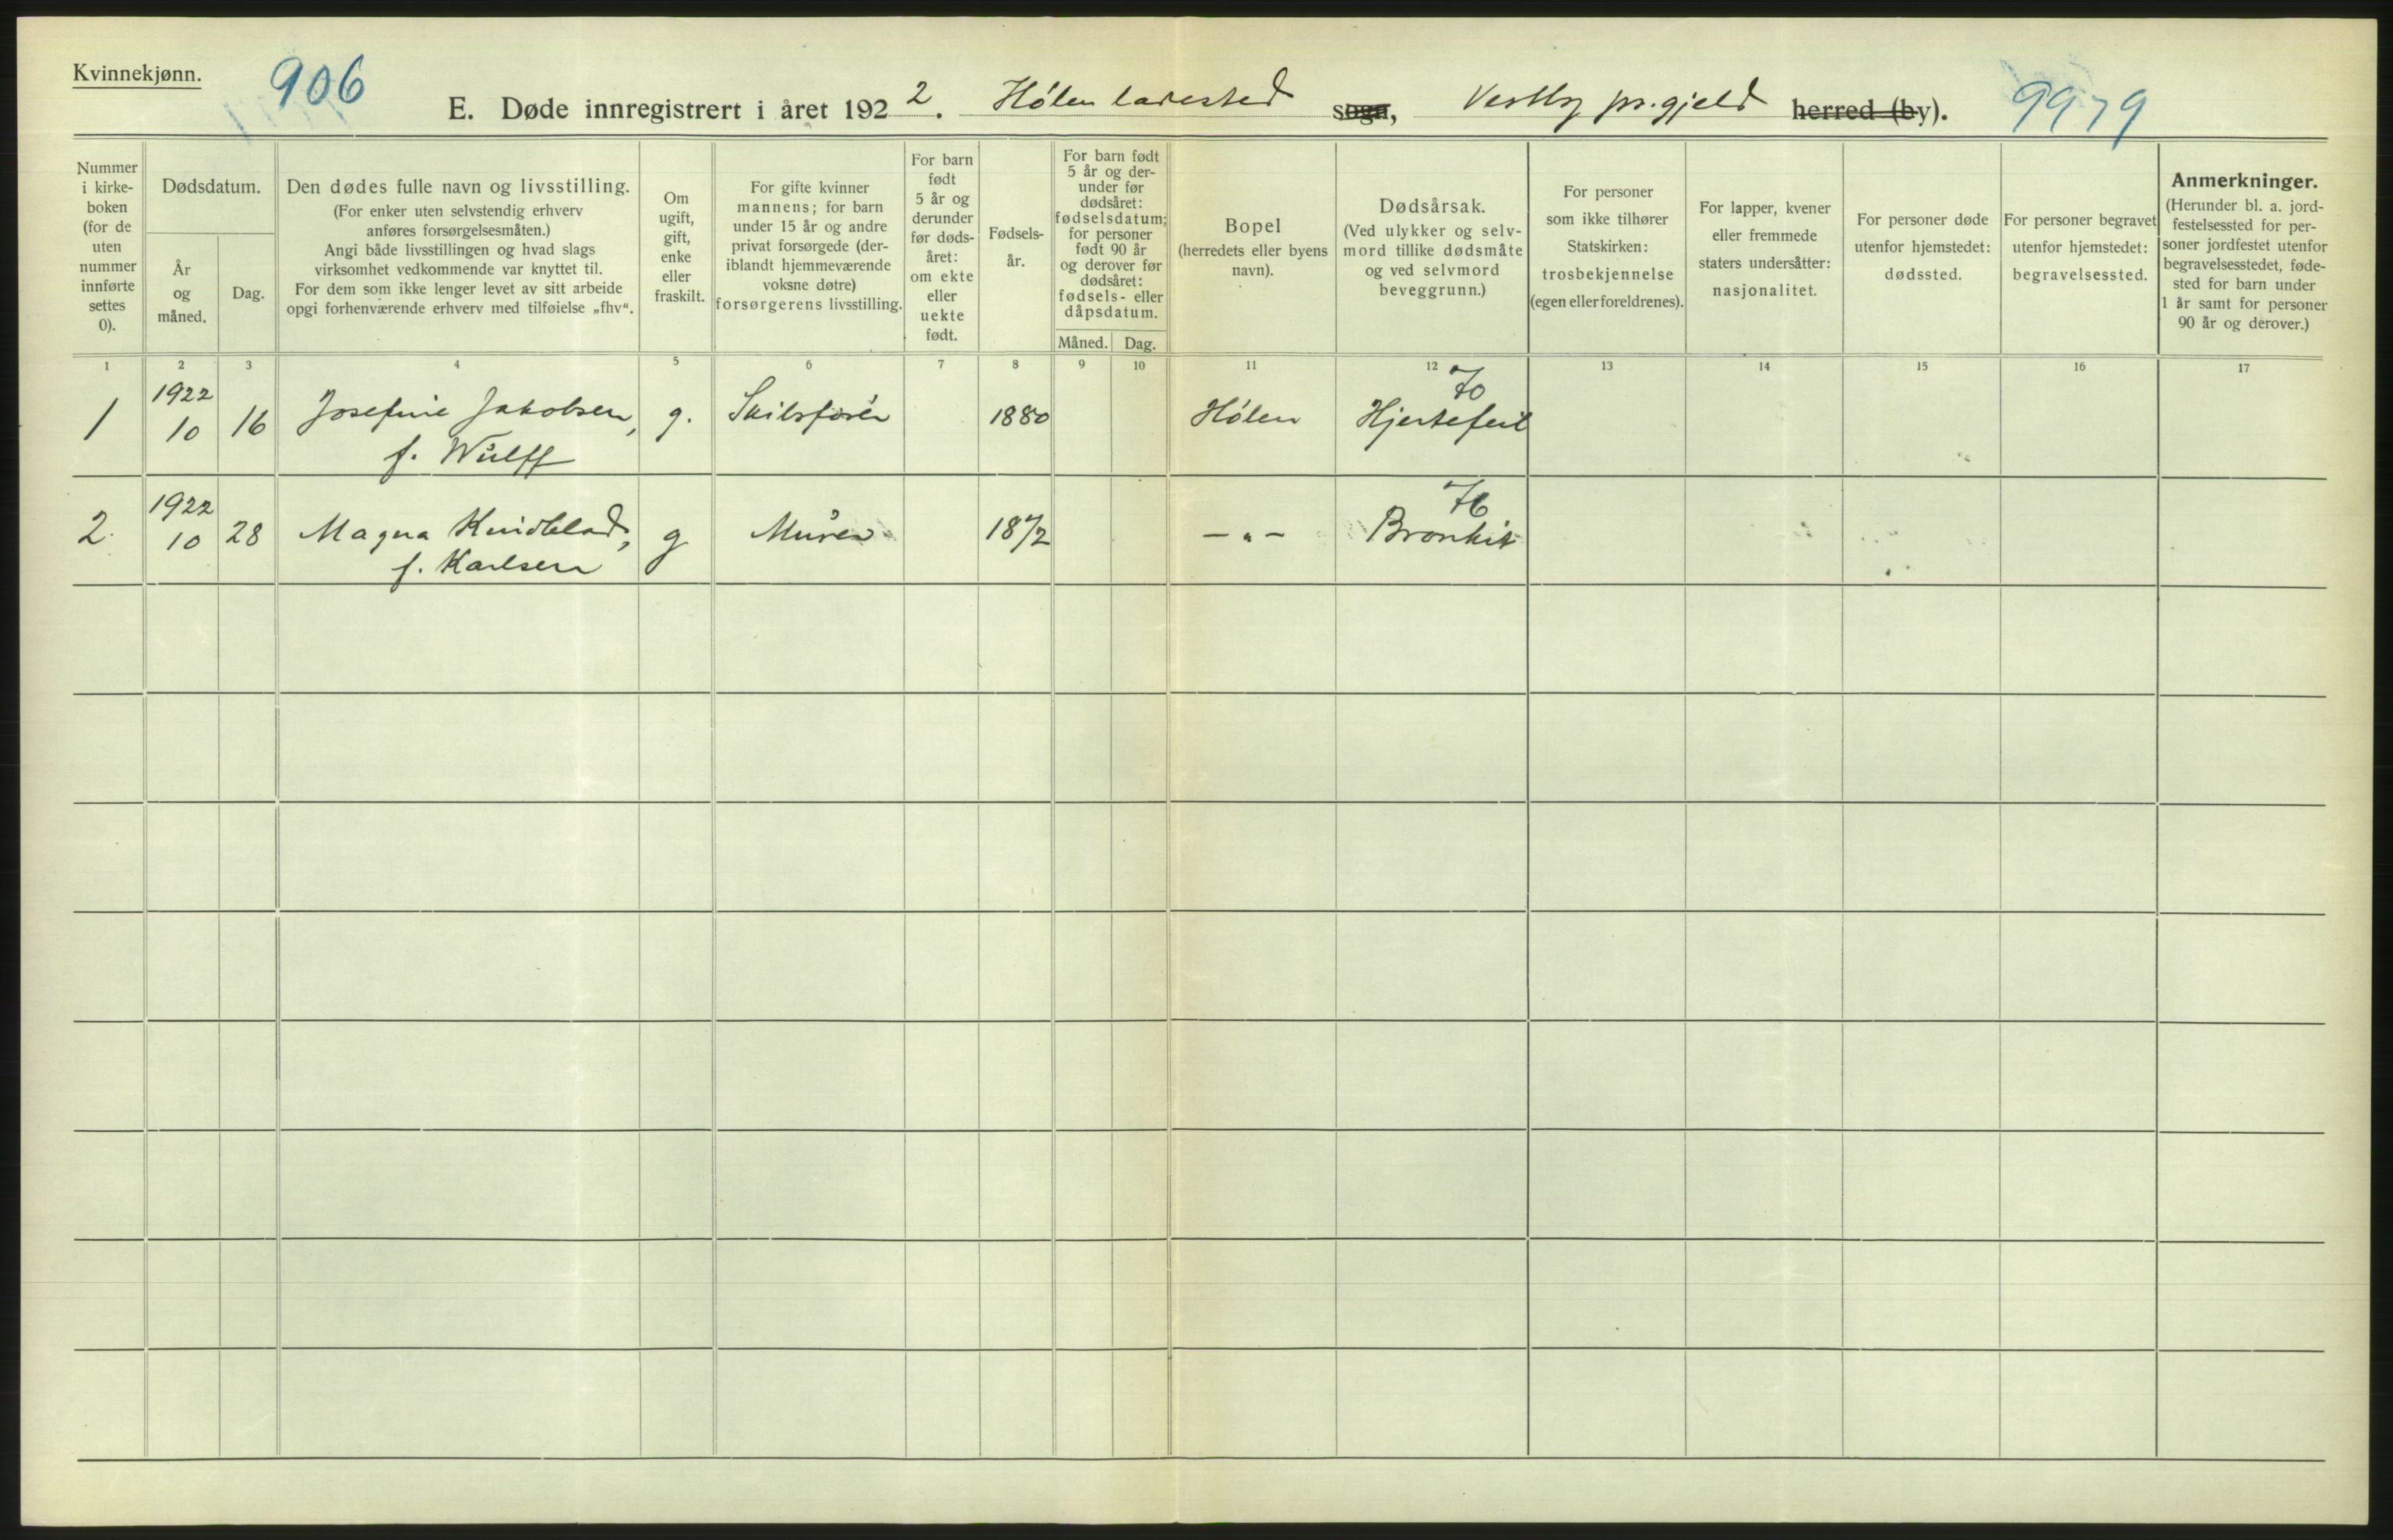 Kvinnekjønn.
906
E. Døde innregistrert i året 1922. Hølen ladested sogn, Vestby pr.gjeld herred (by).
9979
Nummer
i kirke-
boken
(for de
uten
nummer
innførte
settes
0).
Dødsdatum.
År
og
måned.
Dag.
Den dødes fulle navn og livsstilling.
(For enker uten selvstendig erhverv
anføres forsørgelsesmåten.)
Angi både livsstillingen og hvad slags
virksomhet vedkommende var knyttet til.
For dem som ikke lenger levet av sitt arbeide
opgi forhenværende erhverv med tilføielse „fhv“.
Om
ugift,
gift,
enke
eller
fraskilt.
For gifte kvinner
mannens; for barn
under 15 år og andre
privat forsørgede (der-
iblandt hjemmeværende
voksne døtre)
forsørgerens livsstilling.
For barn
født
5 år og
derunder
før døds-
året:
om ekte
eller
uekte
født.
Fødsels-
år.
For barn født
5 år og der-
under før
dødsåret:
fødselsdatum;
for personer
født 90 år
og derover før
dødsåret:
fødsels- eller
dåpsdatum.
Måned. Dag.
Bopel
(herredets eller byens
navn).
Dødsårsak.
(Ved ulykker og selv-
mord tillike dødsmåte
og ved selvmord
beveggrunn.)
For personer
som ikke tilhører
Statskirken:
trosbekjennelse
(egen eller foreldrenes).
For lapper, kvener
eller fremmede
staters undersåtter:
nasjonalitet.
For personer døde
utenfor hjemstedet:
dødssted.
For personer begravet
utenfor hjemstedet:
begravelsessted.
Anmerkninger.
(Herunder bl. a. jord-
festelsessted for per-
soner jordfestet utenfor
begravelsesstedet, føde-
sted for barn under
1 år samt for personer
90 år og derover.)
1 2 3 4 5 6 7 8 9 10 11 12 13 14 15 16 17
1922 70
1 10 16 Josefine Jakobsen, g. Skibsfører 1880 Hølen Hjertefeil
f. Wulff
1922 76
2. 10 28 Magna Kvidblad, g Murer 1872 — " — Bronkit
f. Karlsen